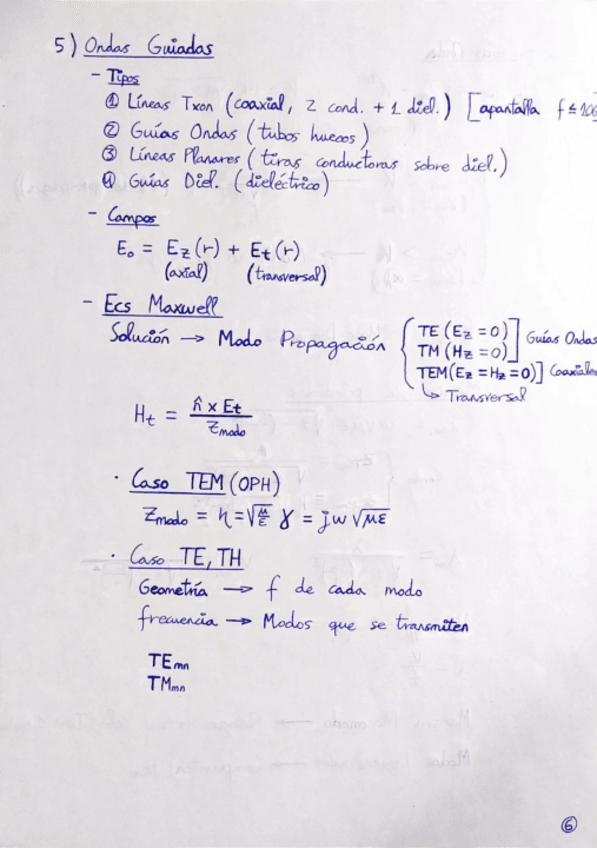 5) Ondas Guiadas
- Tipos
① Líneas Txon (coaxial, 2 cond. + 1 diel.) [apantalla f ≤ 10G
② Guías Ondas (tubos huecos)
③ Líneas Planares (tiras conductoras sobre diel.)
④ Guías Diel. (dieléctrico)
- Campos
E₀ = E_z(r) + E_t(r)
(axial) (transversal)
- Ecs Maxwell
Solución → Modo Propagación { TE (E_z = 0) ] Guías Ondas
TM (H_z = 0) ]
TEM (E_z = H_z = 0) ] Coaxiales
↳ Transversal
H_t = n̂ x E_t / Z_modo
· Caso TEM (OPH)
Z_modo = η = √(μ/ε) γ = jw √με
· Caso TE, TH
Geometría → f de cada modo
frecuencia → Modos que se transmiten
TE_mn
TM_mn
⑥